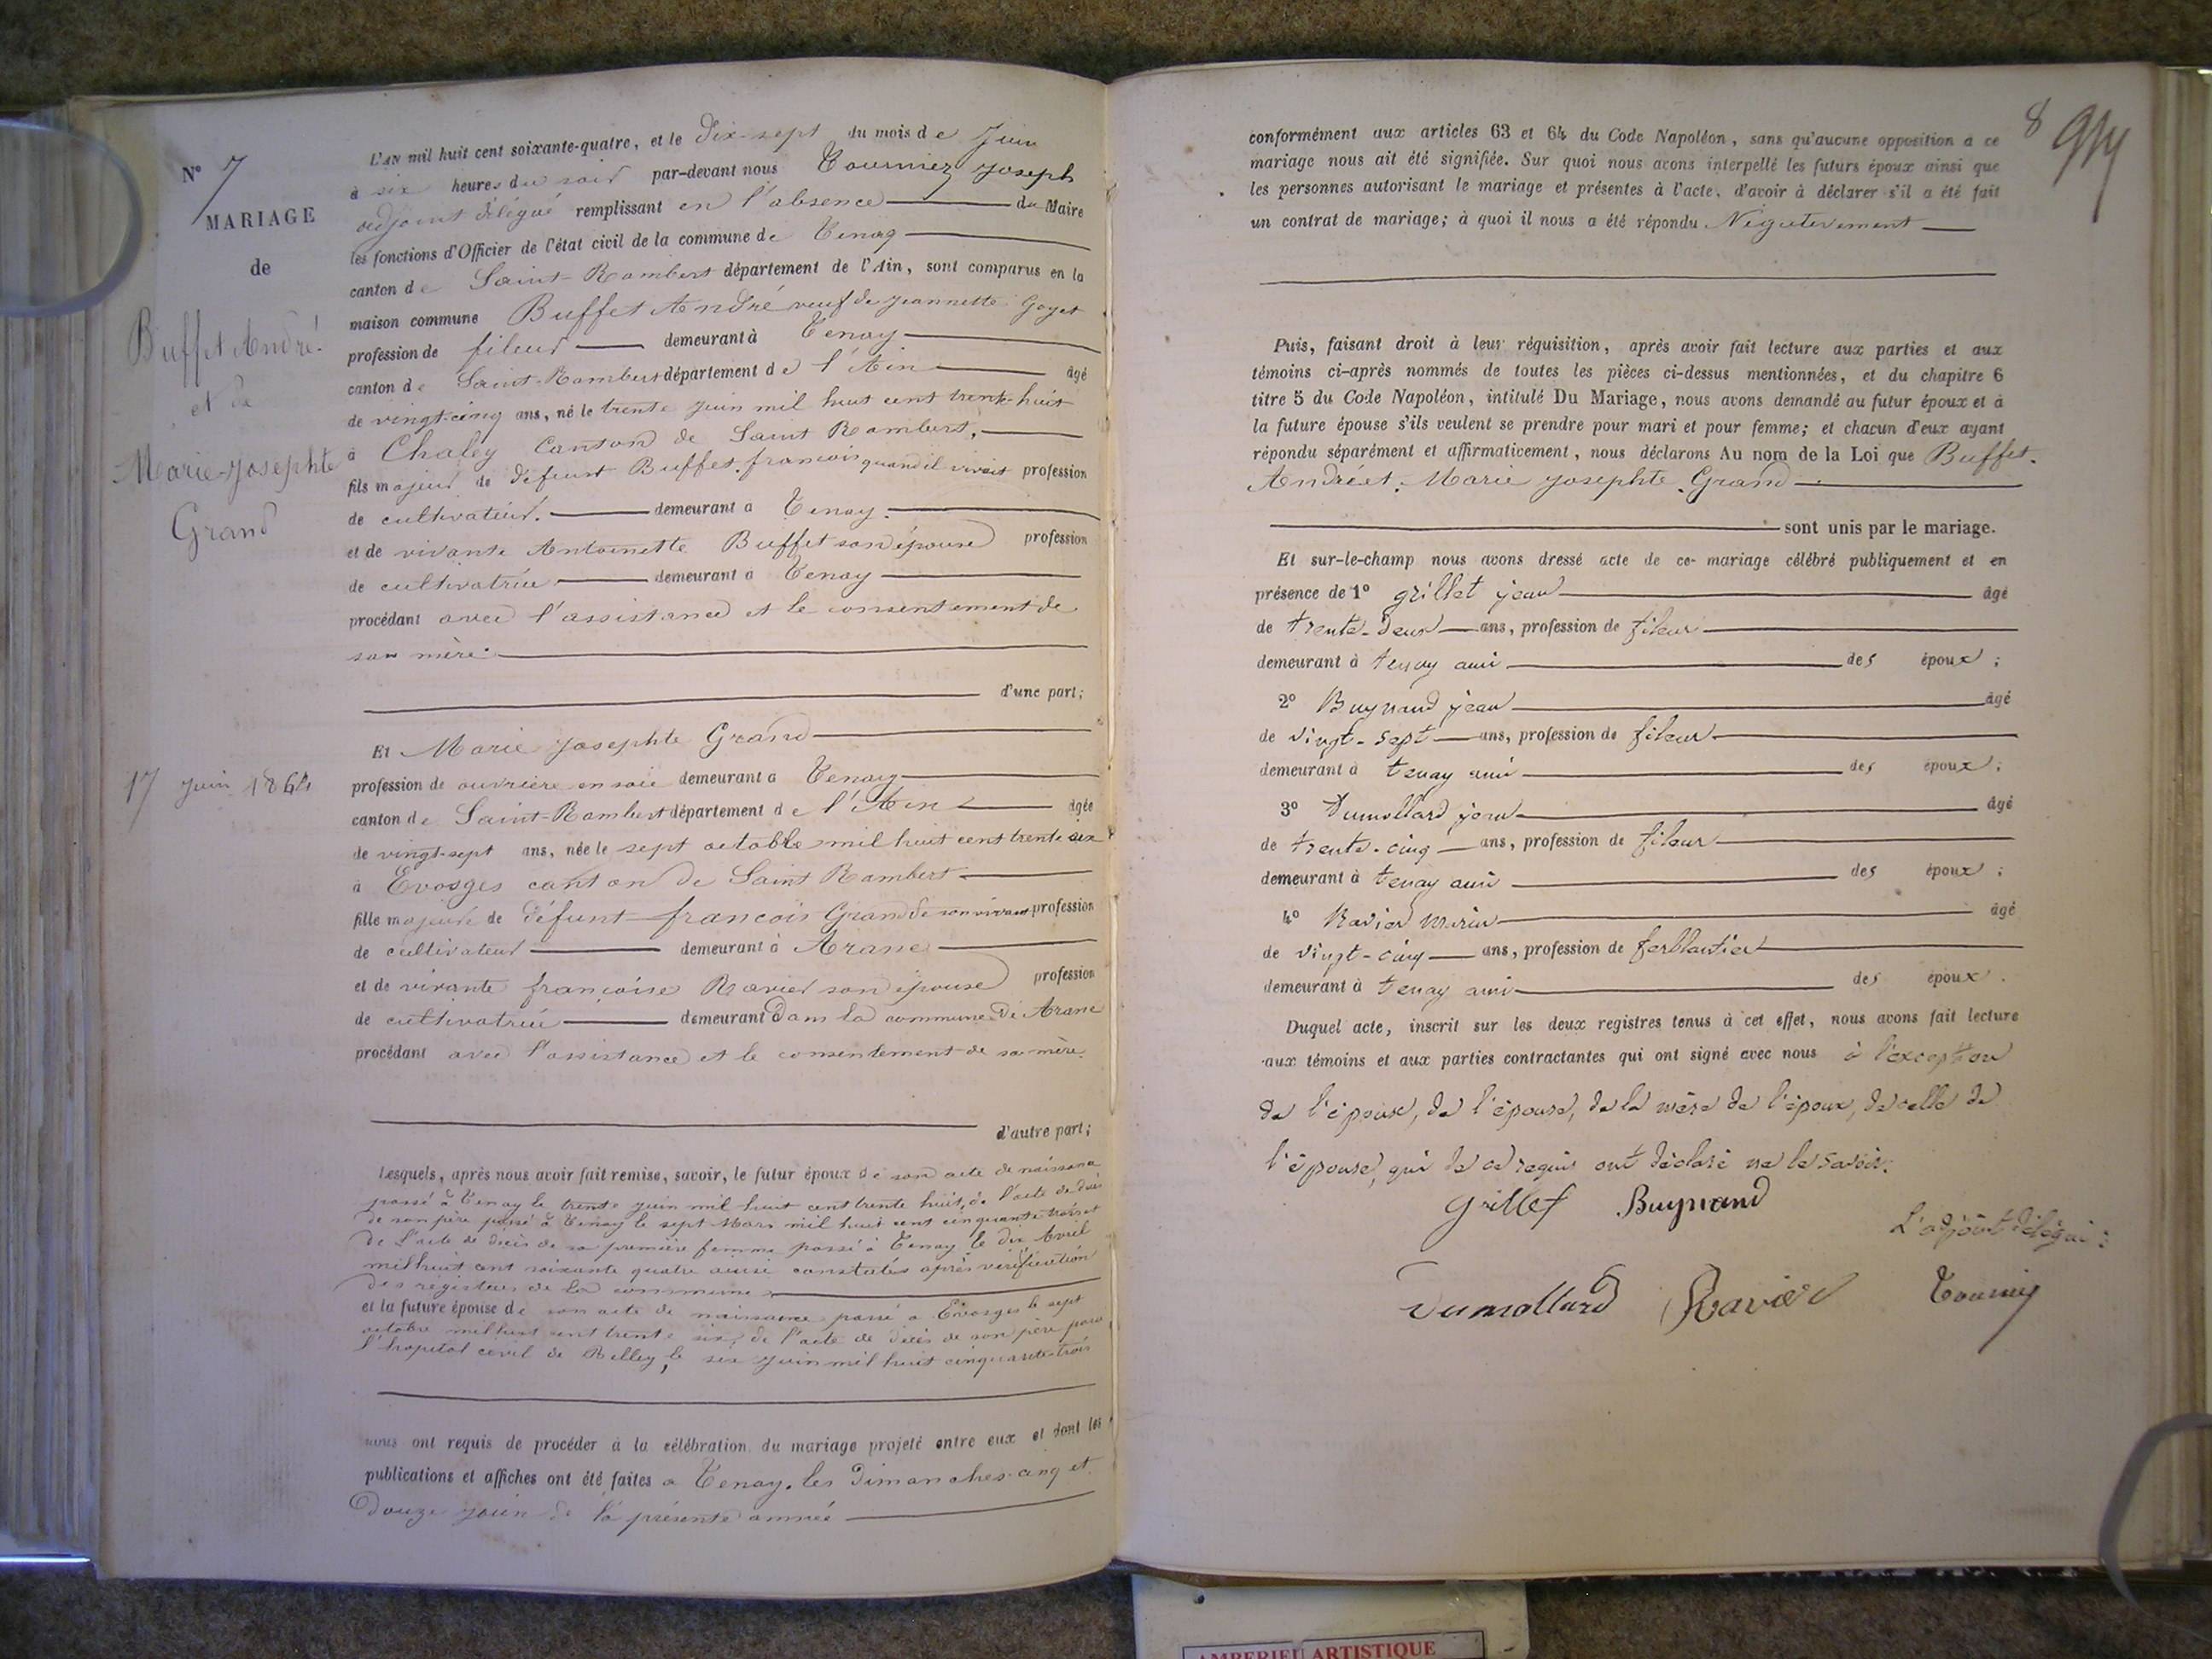 N° 7
MARIAGE
de
Buffet André
et de
Marie-Josephte
Grand
17 juin 1864
L'AN mil huit cent soixante-quatre, et le Dix-sept du mois de Juin
à six heures du soir par-devant nous Tournier Joseph
adjoint délégué remplissant en l'absence du Maire
les fonctions d'Officier de l'état civil de la commune de Tenay
canton de Saint-Rambert département de l'Ain, sont comparus en la
maison commune Buffet André veuf de Jeannette Goyet
profession de fileur demeurant à Tenay
canton de Saint-Rambert département de l'Ain âgé
de vingt-cinq ans, né le trente juin mil huit cent trente-huit
à Chaley Canton de Saint Rambert.
fils majeur de défunt Buffet francois quand il vivait profession
de cultivateur. demeurant a Tenay.
et de vivante Antoinette Buffet son épouse profession
de cultivatrice demeurant a Tenay
procédant avec l'assistance et le consentement de
sa mère.
d'une part;
Et Marie Josephte Grand
profession de ouvrière en soie demeurant a Tenay
canton de Saint-Rambert département de l'Ain âgée
de vingt-sept ans, née le sept octobre mil huit cent trente six
à Evosges canton de Saint Rambert
fille majeure de défunt francois Grand de son vivant profession
de cultivateur demeurant à Arane
et de vivante françoise Ravier son épouse profession
de cultivatrice demeurant Dans la commune de Arane
procédant avec l'assistance et le consentement de sa mère.
d'autre part;
Lesquels, après nous avoir fait remise, savoir, le futur époux de son acte de naissance
passé à Tenay le trente juin mil huit cent trente huit, de l'acte de décès
de son père passé à Tenay le sept Mars mil huit cent cinquante trois et
de l'acte de décès de sa première femme passé à Tenay le dix Avril
mil huit cent soixante quatre ainsi constatés après vérification
des registres de la commune
et la future épouse de son acte de naissance passé a Evosges le sept
octobre mil huit cent trente six, de l'acte de décès de son père passé
l'hopital civil de Belley, le six juin mil huit cinquante-trois
nous ont requis de procéder à la célébration du mariage projeté entre eux et dont les
publications et affiches ont été faites a Tenay, les Dimanches cinq et
Douze juin de la présente année
8
conformément aux articles 63 et 64 du Code Napoléon, sans qu'aucune opposition a ce
mariage nous ait été signifiée. Sur quoi nous avons interpellé les futurs époux ainsi que
les personnes autorisant le mariage et présentes à l'acte, d'avoir à déclarer s'il a été fait
un contrat de mariage; à quoi il nous a été répondu Négativement
Puis, faisant droit à leur réquisition, après avoir fait lecture aux parties et aux
témoins ci-après nommés de toutes les pièces ci-dessus mentionnées, et du chapitre 6
titre 5 du Code Napoléon, intitulé Du Mariage, nous avons demandé au futur époux et à
la future épouse s'ils veulent se prendre pour mari et pour femme; et chacun d'eux ayant
répondu séparément et affirmativement, nous déclarons Au nom de la Loi que Buffet.
André et Marie Josephte Grand
sont unis par le mariage.
Et sur-le-champ nous avons dressé acte de ce mariage célébré publiquement et en
présence de 1° grillet jean âgé
de trente-deux ans, profession de fileur
demeurant à tenay ami des époux;
2° Buynand jean âgé
de vingt-sept ans, profession de fileur
demeurant à tenay ami des époux;
3° Dumollard jean âgé
de trente-cinq ans, profession de fileur
demeurant à tenay ami des époux;
4° Ravier marin âgé
de vingt-cinq ans, profession de ferblantier
demeurant à tenay ami des époux.
Duquel acte, inscrit sur les deux registres tenus à cet effet, nous avons fait lecture
aux témoins et aux parties contractantes qui ont signé avec nous à l'exception
de l'époux, de l'épouse, de la mère de l'époux, de celle de
l'épouse, qui de ce requis ont déclaré ne le savoir.
Grillet Buynand
L'adjoint délégué:
Dumollard Ravier Tournier
AMBERIEU ARTISTIQUE